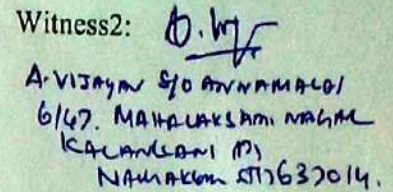 Witness2:
A. VIJAYAN S/O ANNAMALAI
6/67. MAHALAKSAMI NAGAR
KALANGANI (P)
NAMAKKAL DT) 637014.